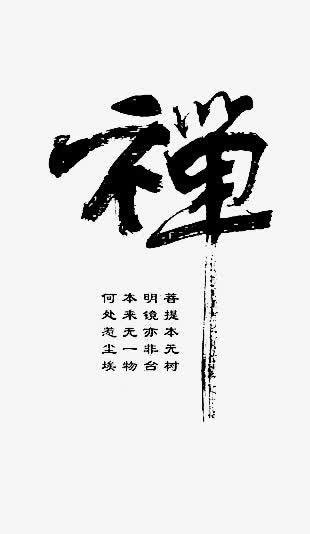 禅
菩提本无树
明镜亦非台
本来无一物
何处惹尘埃